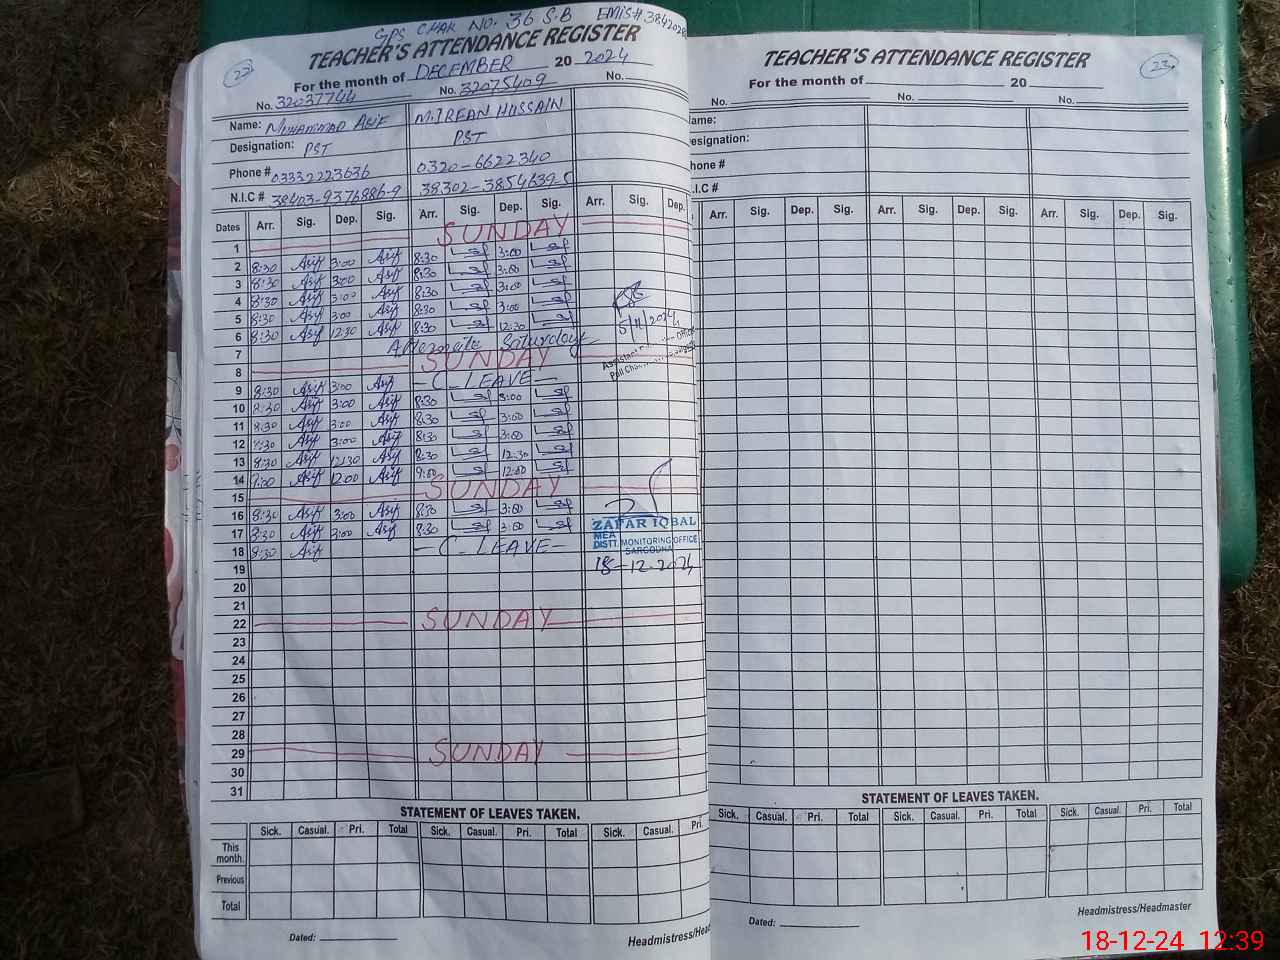 GPS CHAK NO. 36 S.B EMIS# 3842028
TEACHER'S ATTENDANCE REGISTER
22
For the month of DECEMBER 20 2024
No. 32037744 No. 32075409 No.
Name: MUHAMMAD ASIF M.IRFAN HUSSAIN
Designation: PST PST
Phone # 03332223636 0320-6622340
N.I.C # 38403-9376886-9 38302-3854639-5
Dates Arr. Sig. Dep. Sig. Arr. Sig. Dep. Sig. Arr. Sig. Dep.
1 SUNDAY
2 8:30 Asif 3:00 Asif 8:30 3:00
3 8:30 Asif 3:00 Asif 8:30 3:00
4 8:30 Asif 3:00 Asif 8:30 3:00
5 8:30 Asif 3:00 Asif 8:30 3:00
6 8:30 Asif 12:30 Asif 8:30 12:30
7 Alternate Saturday
8 SUNDAY
9 8:30 Asif 3:00 Asif - C-LEAVE -
10 8:30 Asif 3:00 Asif 8:30 3:00
11 8:30 Asif 3:00 Asif 8:30 3:00
12 8:30 Asif 3:00 Asif 8:30 3:00
13 8:30 Asif 12:30 Asif 8:30 12:30
14 9:00 Asif 12:00 Asif 9:00 12:00
15 SUNDAY
16 8:30 Asif 3:00 Asif 8:30 3:00
17 8:30 Asif 3:00 Asif 8:30 3:00
18 8:30 Asif - C-LEAVE -
19
20
21
22 SUNDAY
23
24
25
26
27
28
29 SUNDAY
30
31
5/11/2024
ZAFAR IQBAL
MEA
DISTT. MONITORING OFFICE
SARGODHA
18-12-2024
STATEMENT OF LEAVES TAKEN.
Sick. Casual. Pri. Total Sick. Casual. Pri. Total Sick. Casual. Pri.
This month.
Previous
Total
Dated:
Headmistress/Head
TEACHER'S ATTENDANCE REGISTER
22
For the month of 20
No. No. No.
Name:
esignation:
hone #
.I.C #
Arr. Sig. Dep. Sig. Arr. Sig. Dep. Sig. Arr. Sig. Dep. Sig.
STATEMENT OF LEAVES TAKEN.
Sick. Casual. Pri. Total Sick. Casual. Pri. Total Sick. Casual. Pri. Total
Dated:
Headmistress/Headmaster
18-12-24 12:39